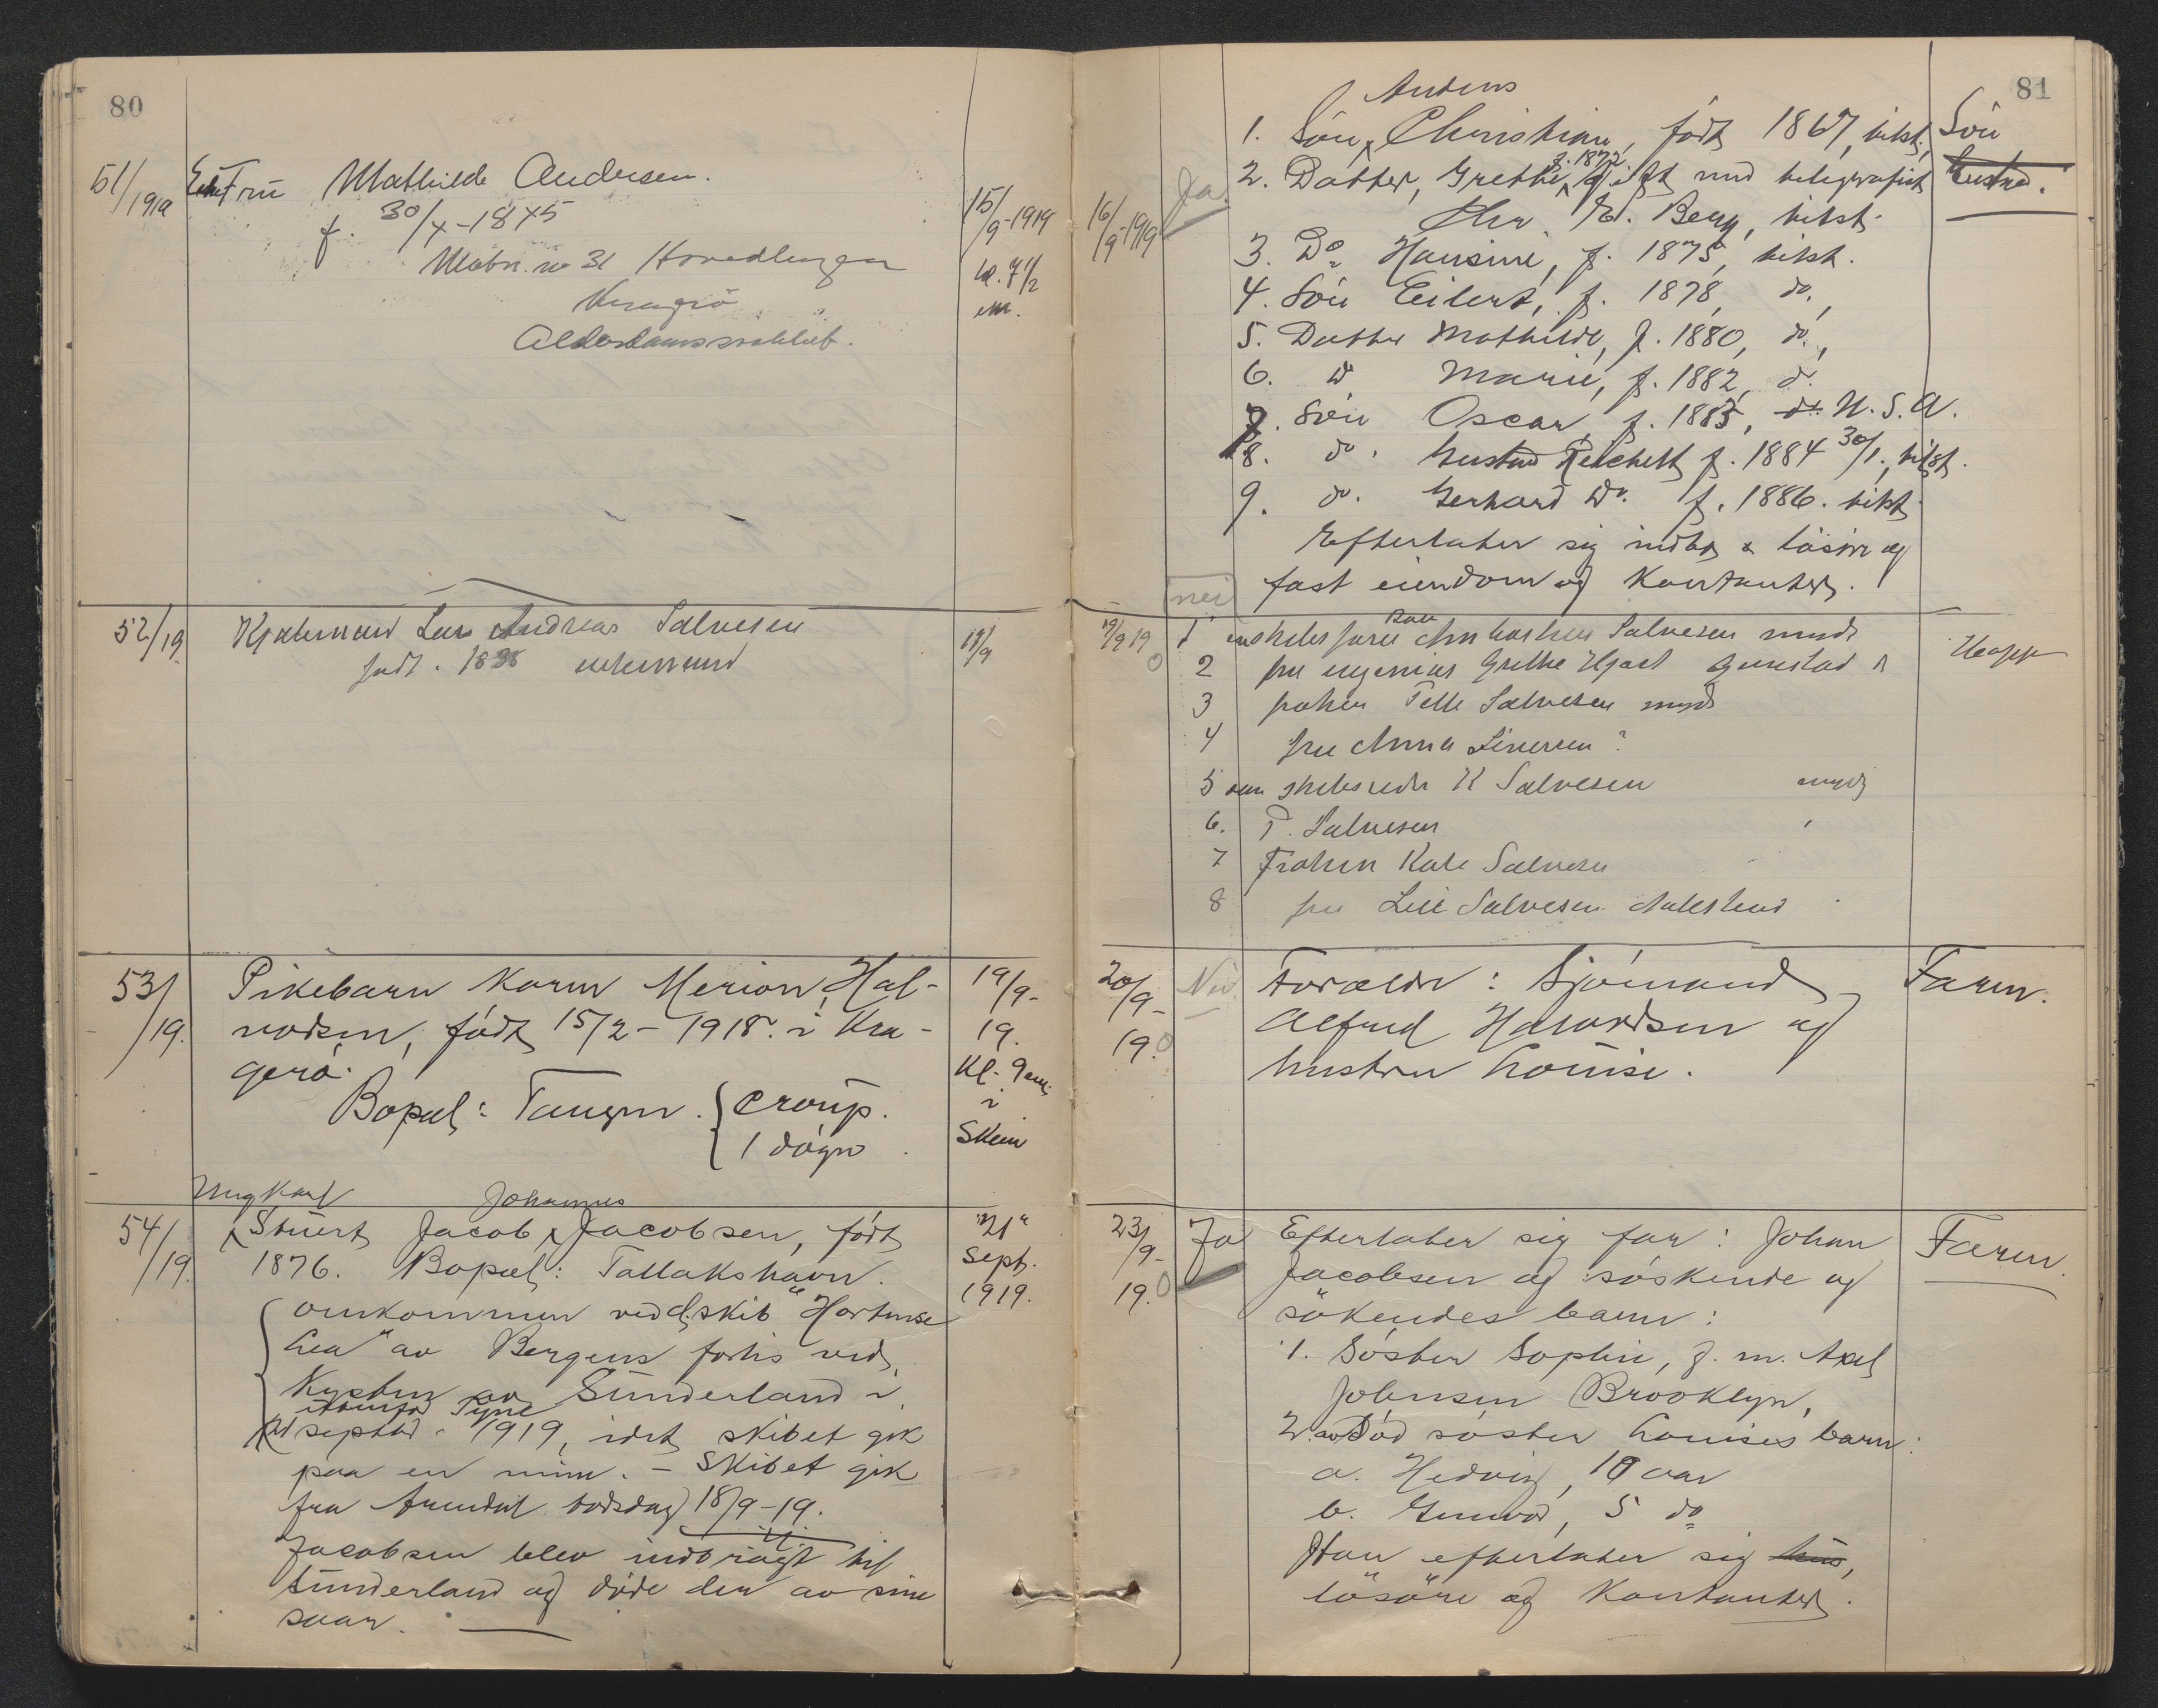 80
51/1919 Enkefru Mathilde Andersen. 15/9-1919
f. 30/4-1845 kl. 7 1/2
Matr. no 31 Hovedlengen em.
Kragerö
Alderdomssvakhet.
52/19 Kjøbmand Lars Andreas Salvesen 19/9
født. 1838 enkemand
53/19. Pikebarn Karen Merion Hal- 19/9-
vorsen, födt 15/2-1918 i Kra- 19.
gerö. Kl. 9 em.
Bopæl: Tangen. { Croup. i
1 dögn. Skien
Ungkarl Johannes
54/19. Stuert Jacob Jacobsen, födt "21"
1876. Bopæl: Tallakshavn. Sept.
omkommen ved d/skib "Hortense 1919.
Lea" av Bergens forlis ved
Kysten av Sunderland i
utenfor Tyne
21 septbr 1919, idet skibet gik
paa en mine. - Skibet gik
fra Arendal torsdag 18/9-19.
Jacobsen blev indbragt til
Sunderland og døde der av sine
saar.
81
Anders
16/9-1919 Ja. 1. Sön, Christian, födt 1867, tilst., Sön
f. 1872
2. Datter, Grethe, gift med telegrafist Gustav.
Chr. E. Berg, tilst.
3. Do Hansine, f. 1875, tilst.
4. Sön Eilert, f. 1878, do,
5. Datter Mathilde, f. 1880, do.,
6. do Marie, f. 1882, do.
7. Sön Oscar, f. 1883, do. U.S.A.
8. do. Gustav Reichelt f. 1884 30/1, tilst.
9. do. Gerhard do. f. 1886. tilst.
Efterlater sig indbo & lösöre og
nei fast eiendom og Kontanter.
19/9 19 1 Salvesen myndig
2 fru Grethe
3 frøken Salvesen mynd
4 fru Anna
5 skibsreder K Salvesen myndig
6. P. Salvesen
7 Frøken Kate Salvesen
8 fru Salvesen
20/9-19. Nei. Forældre: Sjömand Faren.
Alfred Halvorsen og
hustru Louise.
23/9-19. Ja Efterlater sig far: Johan Faren.
Jacobsen og söskende og
sökendes barn:
1. Söster Sophie, g. m. Axel
Johnsen, Brooklyn,
2. av Död söster Louises barn:
a. Hedvig, 10 aar
b. Gunvor, 5 do
Han efterlater sig hus,
lösöre og Kontanter.